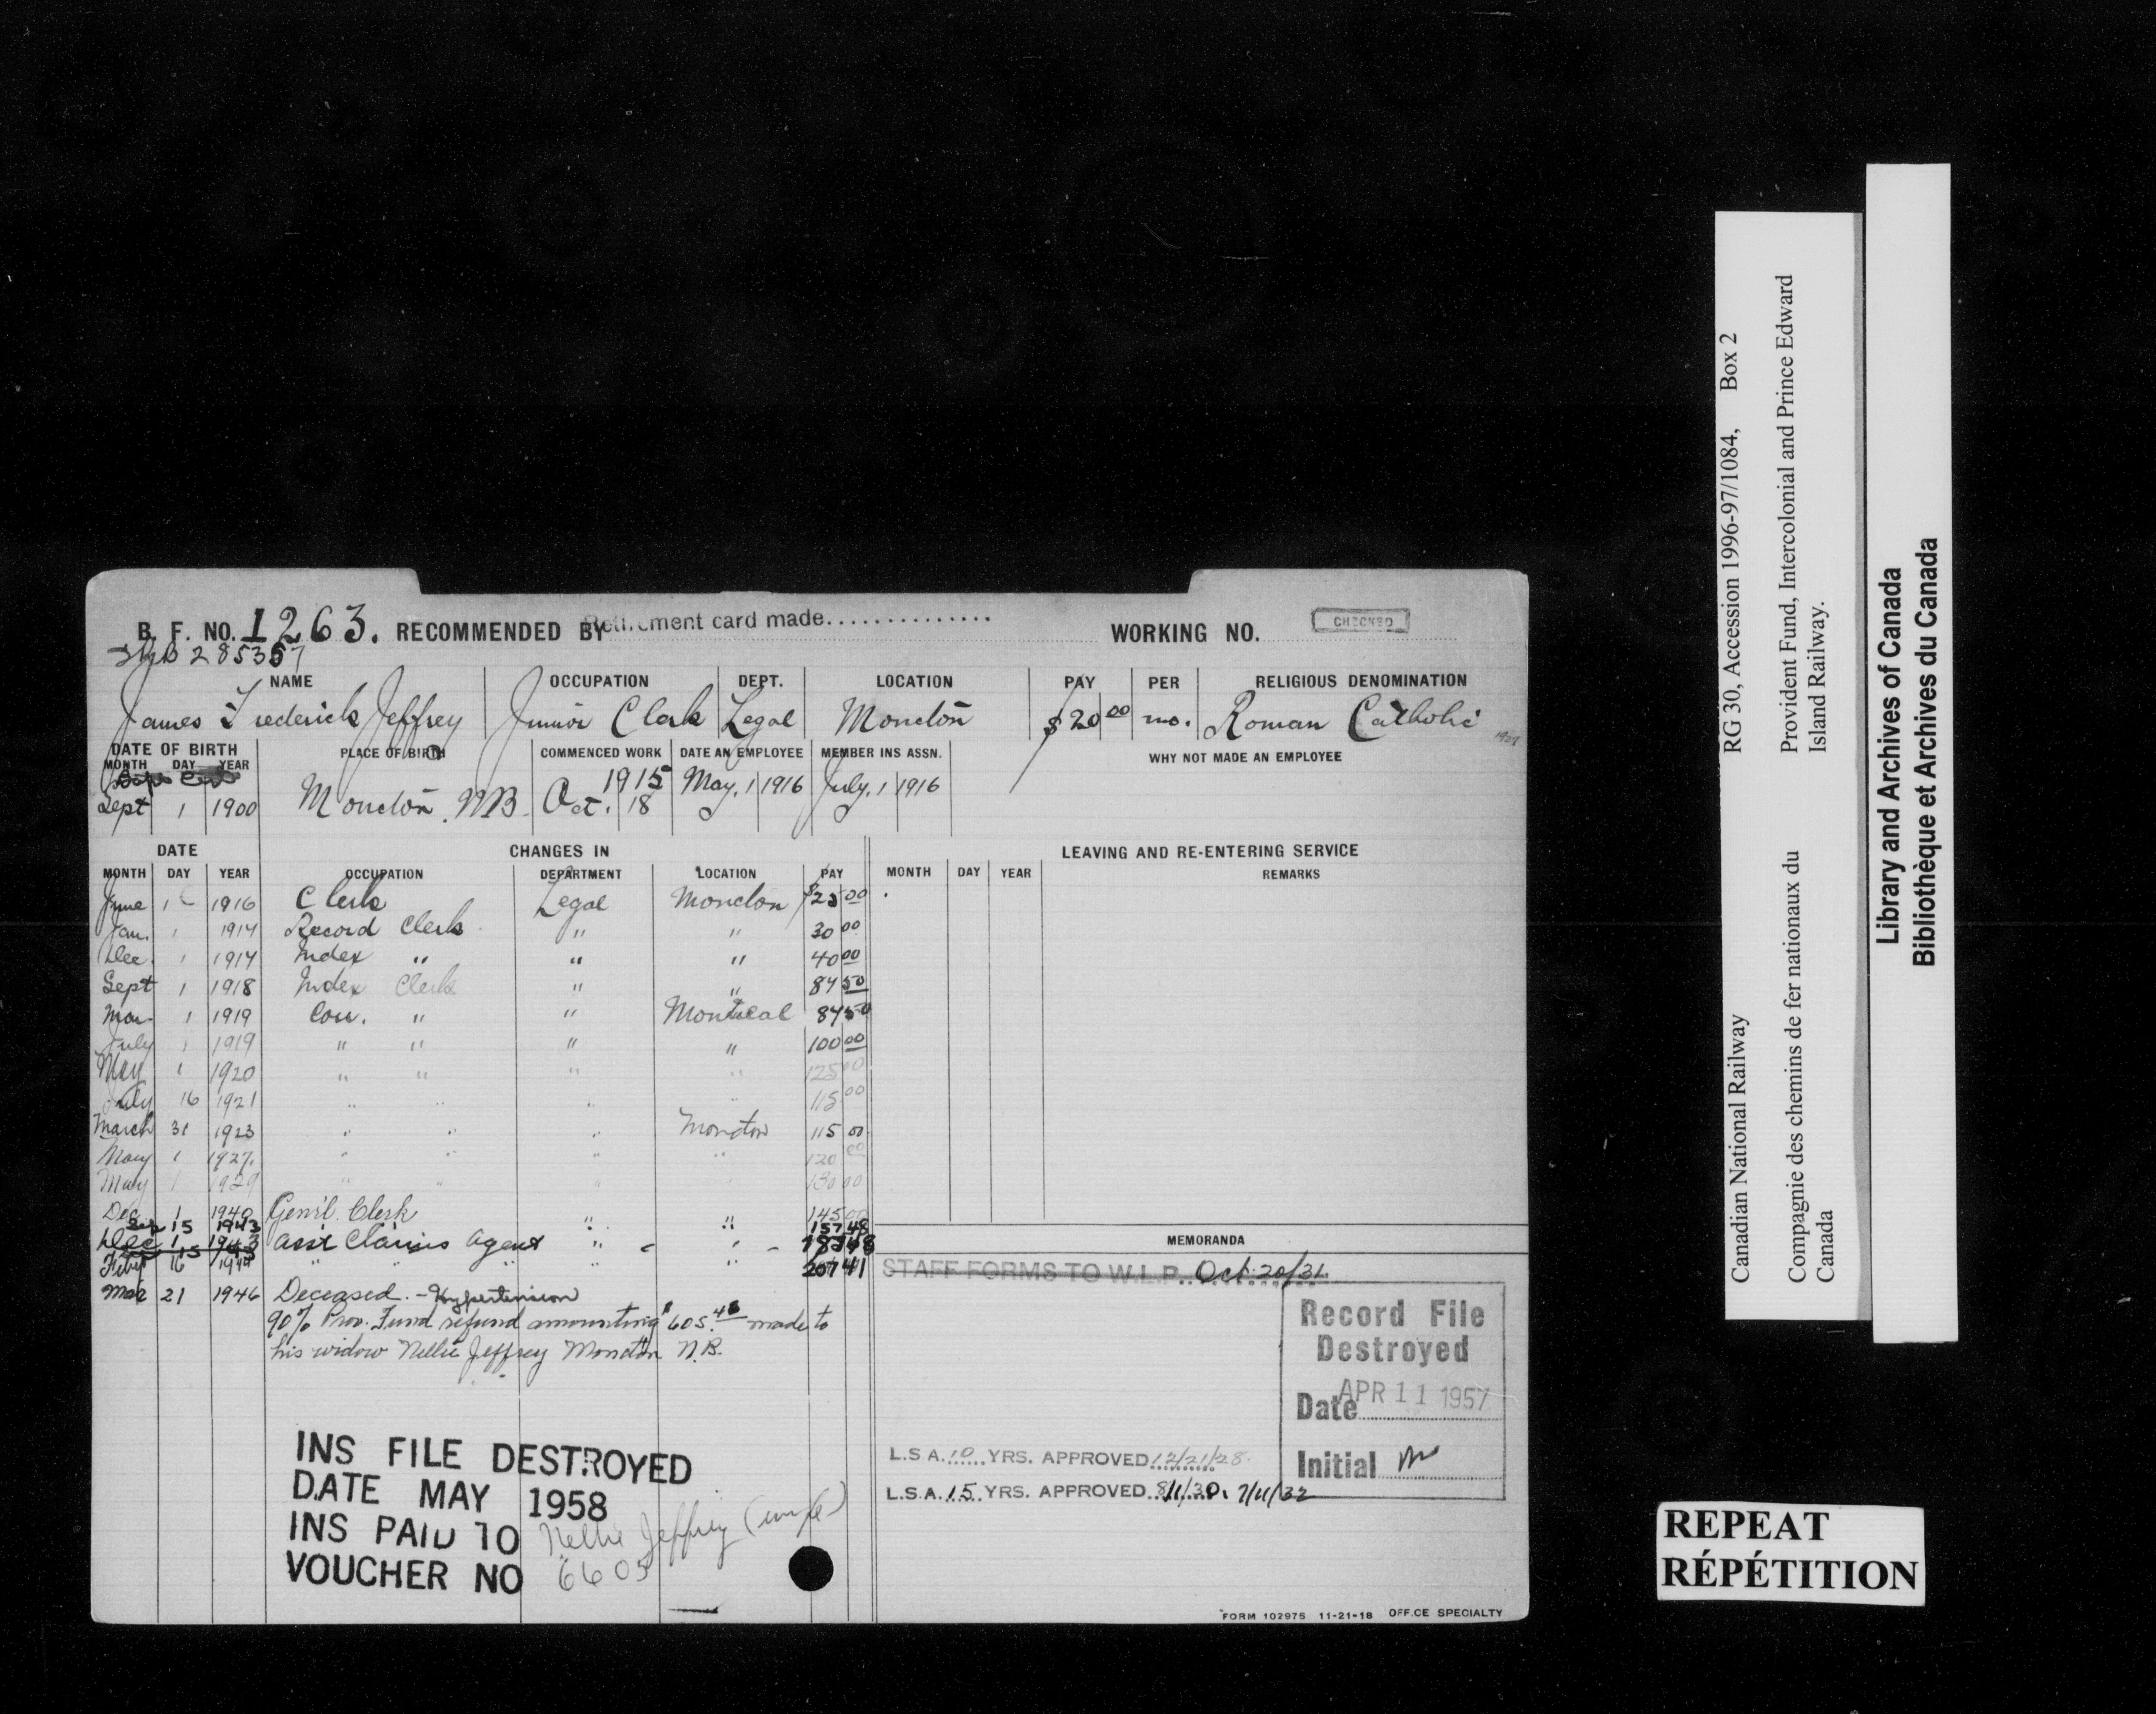 B. F. NO. 1263. RECOMMENDED BY Retirement card made............... WORKING NO. CHECKED
285357
NAME OCCUPATION DEPT. LOCATION PAY PER RELIGIOUS DENOMINATION
James Frederick Jeffrey Junior Clerk Legal Moncton $20 00 mo. Roman Catholic
DATE OF BIRTH PLACE OF BIRTH COMMENCED WORK DATE AN EMPLOYEE MEMBER INS ASSN. WHY NOT MADE AN EMPLOYEE
MONTH DAY YEAR
1915 May. 1 1916 July. 1 1916
Sept 1 1900 Moncton. N.B. Oct. 18
DATE CHANGES IN LEAVING AND RE-ENTERING SERVICE
MONTH DAY YEAR OCCUPATION DEPARTMENT LOCATION PAY MONTH DAY YEAR REMARKS
June 1 1916 Clerk Legal Moncton $25 00
Jan. 1 1917 Record Clerk " " 30 00
Dec. 1 1917 Index " " " 40 00
Sept 1 1918 Index Clerk " " 84 50
Mar. 1 1919 Corr. " " Montreal 84 50
July 1 1919 " " " " 100 00
May 1 1920 " " " " 125 00
July 16 1921 " " " " 115 00
March 31 1923 " " " Moncton 115 00
May 1 1927. " " " " 120 00
May 1 1929 " " " " 130 00
Dec 1 1940 Gen'l. Clerk " " 145 00
Sep 15 1943 157 48
Dec 1 1943 Ass't Claims Agent " "
Feby 16 1944 " " " " " 207 41
MEMORANDA
STAFF FORMS TO W.I.P. Oct. 20/31.
Mar 21 1946 Deceased. - Hypertension
90% Prov. Fund refund amounting $605.48 made to
his widow Nellie Jeffrey Moncton N.B.
Record File
Destroyed
Date APR 11 1957
Initial
L.S.A. 10 YRS. APPROVED 12/21/28.
L.S.A. 15 YRS. APPROVED 8/1/30. 7/11/32
INS FILE DESTROYED
DATE MAY 1958
INS PAID TO Nellie Jeffrey (wife)
VOUCHER NO 6605
FORM 102975 11-21-18 OFFICE SPECIALTY
Canadian National Railway RG 30, Accession 1996-97/1084, Box 2
Compagnie des chemins de fer nationaux du Provident Fund, Intercolonial and Prince Edward
Canada Island Railway.
Library and Archives of Canada
Bibliothèque et Archives du Canada
REPEAT
RÉPÉTITION